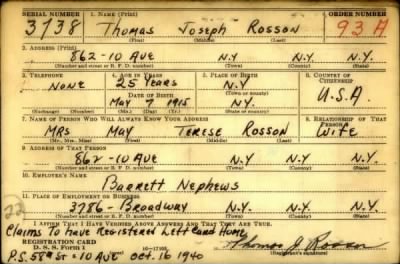 SERIAL NUMBER 1. NAME (Print) ORDER NUMBER
3738 Thomas Joseph Rosson 93 A
(First) (Middle) (Last)
2. ADDRESS (Print)
862-10 AVE N.Y N.Y. N.Y.
(Number and street or R. F. D. number) (Town) (County) (State)
3. TELEPHONE 4. AGE IN YEARS 5. PLACE OF BIRTH 6. COUNTRY OF CITIZENSHIP
NONE 25 Years N.Y.
DATE OF BIRTH (Town or county)
MAY 7 1915 N.Y. U.S.A.
(Exchange) (Number) (Mo.) (Day) (Yr.) (State or country)
7. NAME OF PERSON WHO WILL ALWAYS KNOW YOUR ADDRESS 8. RELATIONSHIP OF THAT PERSON
MRS MAY TERESE ROSSON WIFE
(Mr., Mrs., Miss) (First) (Middle) (Last)
9. ADDRESS OF THAT PERSON
862-10 AVE N.Y. N.Y. N.Y.
(Number and street or R. F. D. number) (Town) (County) (State)
10. EMPLOYER'S NAME
Barrett Nephews
11. PLACE OF EMPLOYMENT OR BUSINESS
3786-Broadway N.Y. N.Y. N.Y.
(Number and street or R. F. D. number) (Town) (County) (State)
I AFFIRM THAT I HAVE VERIFIED ABOVE ANSWERS AND THAT THEY ARE TRUE.
Claims To Have Registered Left Card Home
REGISTRATION CARD
D. S. S. FORM 1 Thomas J Rosson
(Registrant's signature)
P.S. 58th St & 10 AVE Oct. 16 1940